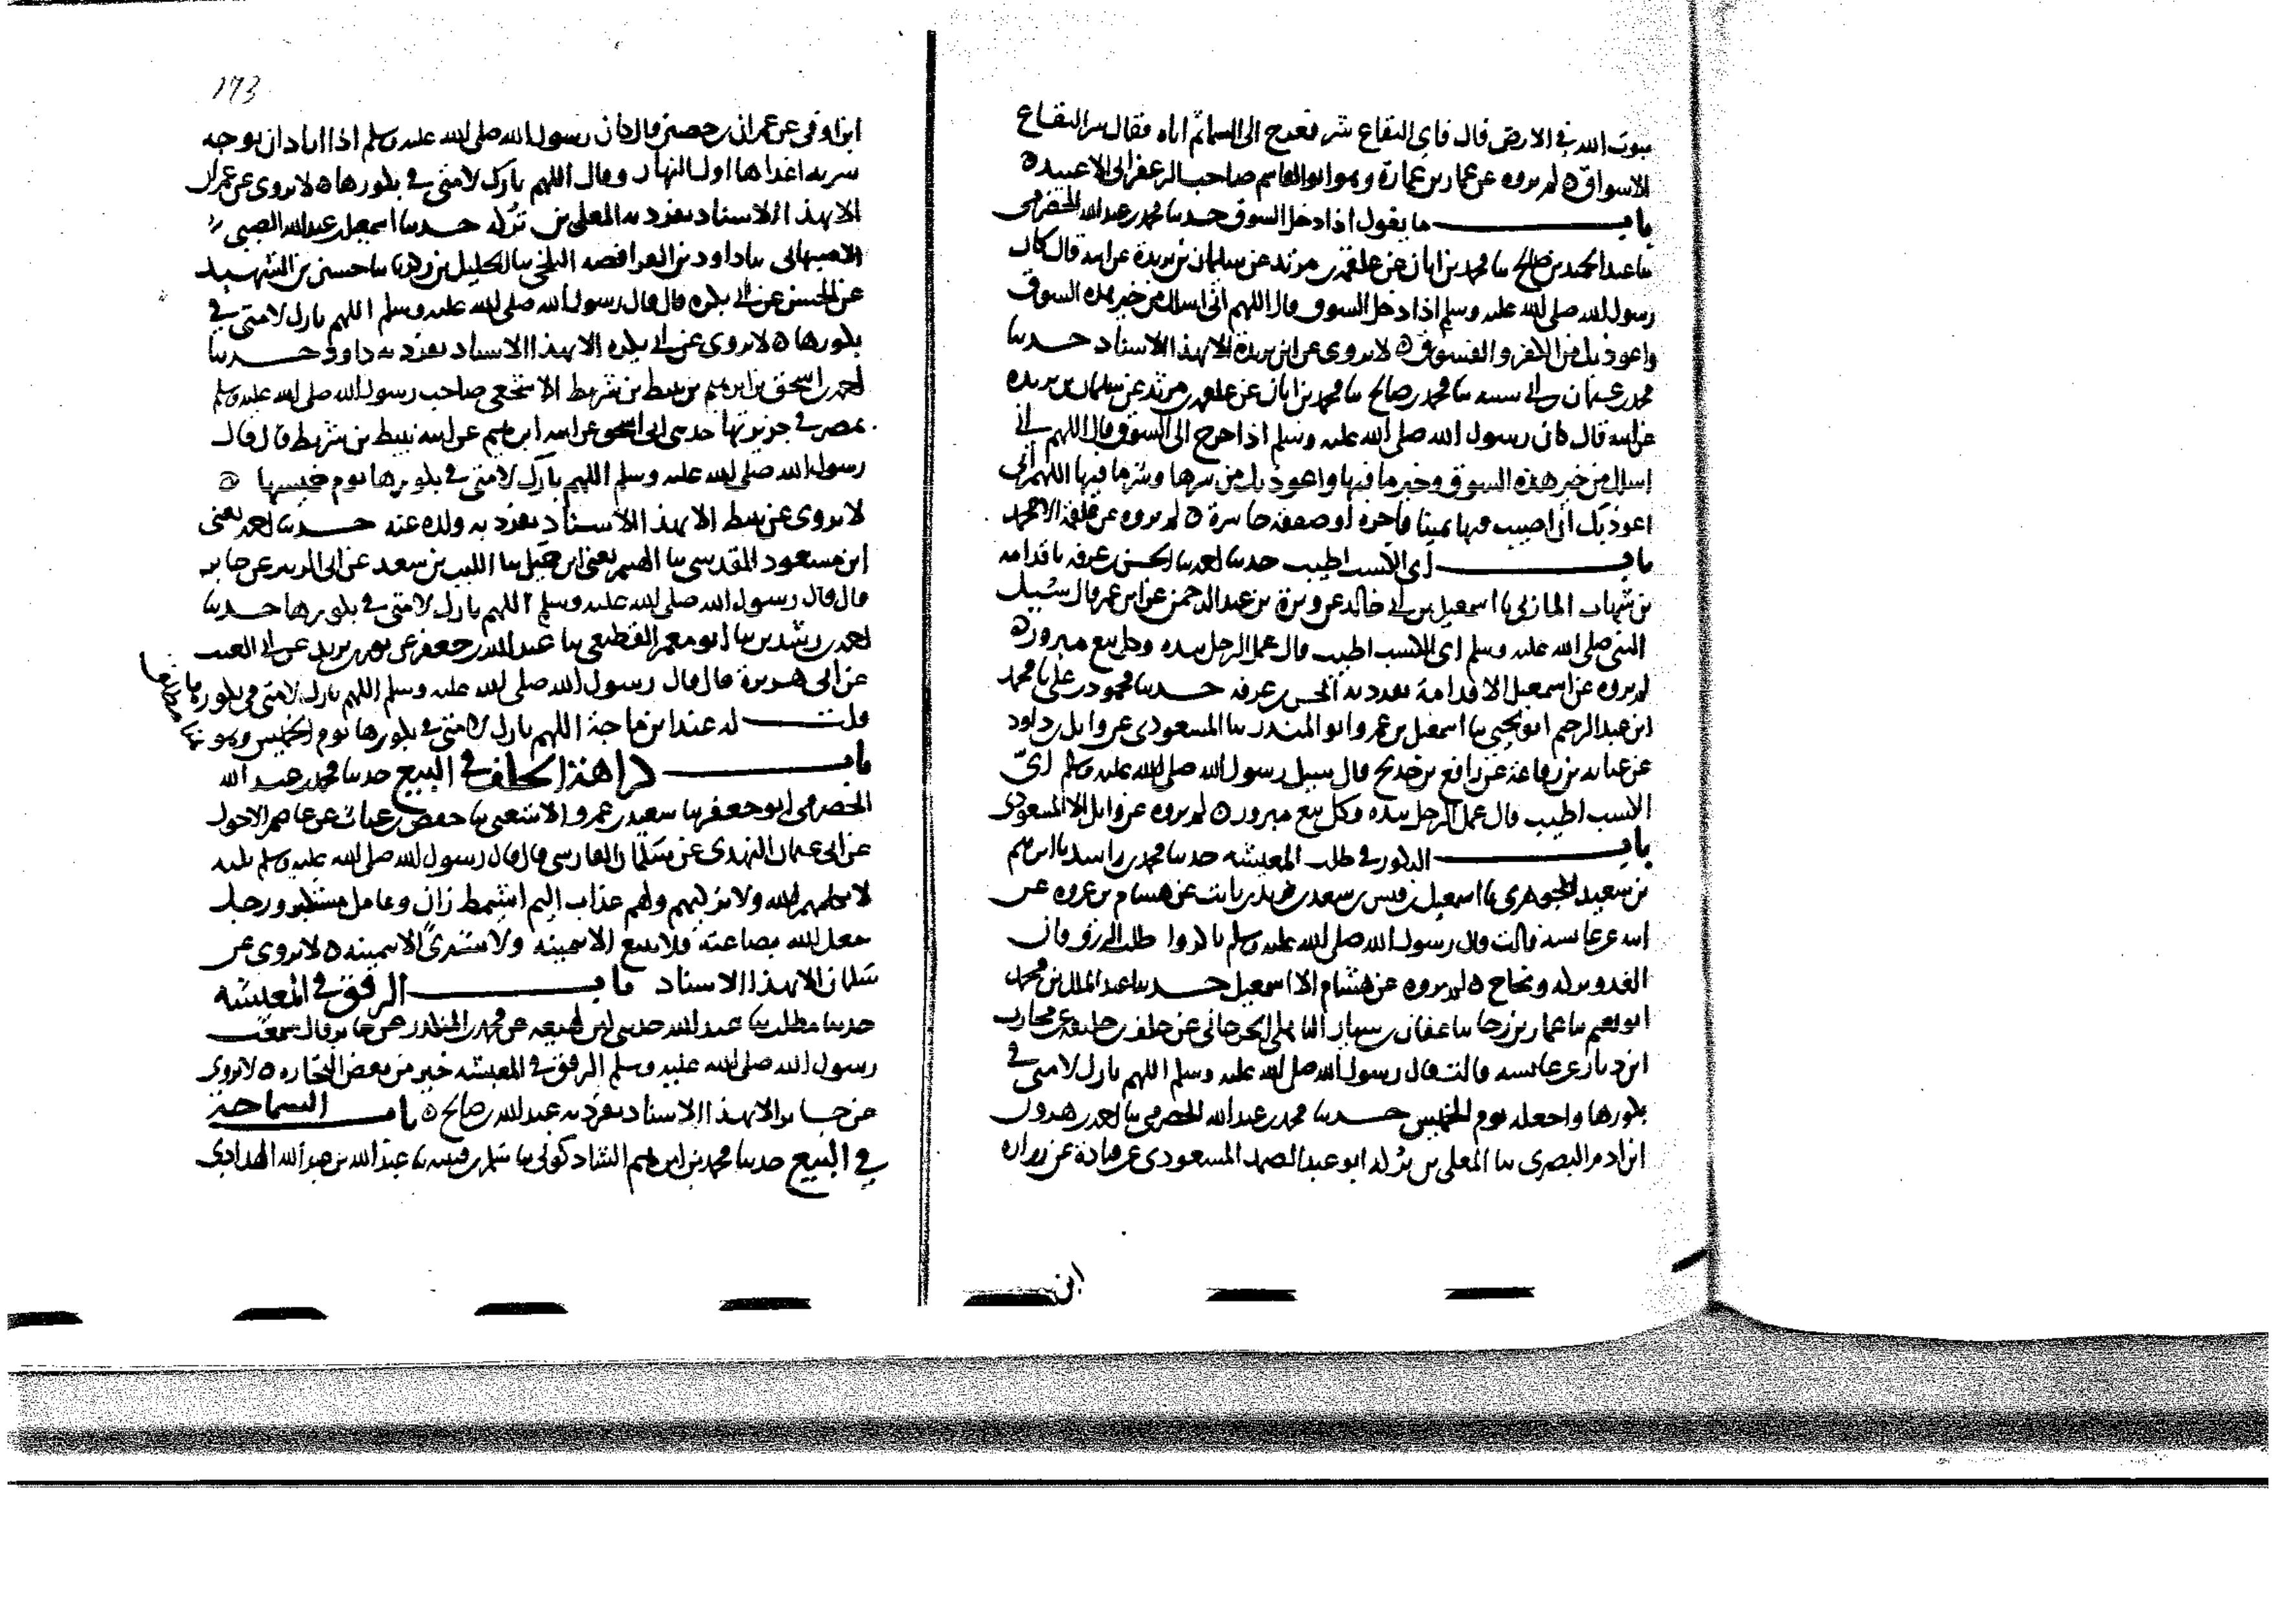 بيوت الله في الارض قال فاي البقاع شر فعرج الى السما ثم اتاه فقال شر البقاع
الاسواق ه لم يروه عن عمار بن عمارة وهو ابو القاسم صاحب الزعفراني الا عبيد ه
باب ما يقول اذا دخل السوق حدثنا محمد بن عبد الله الحضرمي
ثنا عبد الحميد بن صالح ثنا محمد بن ابان عن علقمة بن مرثد عن سليمان بن بريدة عن ابيه قال كان
رسول الله صلى الله عليه وسلم اذا دخل السوق قال اللهم اني اسالك من خير هذه السوق
واعوذ بك من الكفر والفسوق ه لا يروى عن ابن بريدة الا بهذا الاسناد حدثنا
محمد بن عثمان بن ابي شيبه ثنا محمد بن صالح ثنا محمد بن ابان عن علقمه بن مرثد عن سليمان بن بريده
عن ابيه قال كان رسول الله صلى الله عليه وسلم اذا خرج الى السوق قال اللهم اني
اسالك من خير هذه السوق وخير ما فيها واعوذ بك من شرها وشر ما فيها اللهم اني
اعوذ بك ان اصيب فيها يمينا فاجره او صفقه خاسرة ه لم يروه عن علقمة الا محمد
باب اي الكسب اطيب حدثنا احمد ثنا الحسن بن عرفه نا قدامه
بن شهاب المازني نا اسمعيل بن ابي خالد عن وبرة بن عبد الرحمن عن ابن عمر قال سئيل
النبي صلى الله عليه وسلم اي الكسب اطيب قال عمل الرجل بيده وكل بيع مبرور ه
لم يروه عن اسمعيل الا قدامة تفرد به الحسن بن عرفه حدثنا محمود بن علي نا محمد
ابن عبد الرحيم ابو يحيى نا اسمعيل بن عمر وابو المنذر ثنا المسعودي عن وايل بن داود
عن عبايه بن رفاعة عن رافع بن خديج قال سيل رسول الله صلى الله عليه وسلم اي
الكسب اطيب قال عمل الرجل بيده وكل بيع مبرور ه لم يروه عن وايل الا المسعودي
باب البكور في طلب المعيشه حدثنا محمد بن راشد نا ابرهيم
بن سعيد الجوهري نا اسمعيل بن قيس بن سعد بن زيد بن ثابت عن هشام بن عروه عن
ابيه عن عايشه قالت قال رسول الله صلى الله عليه وسلم باكروا طلب الرزق فان
الغدو بركه ونجاح ه لم يروه عن هشام الا اسمعيل حدثنا عبد الملك بن محمد
ابو نعيم نا عمار بن رجا ثنا عفان بن سيار الجرجاني عن خلف بن خليفة عن محارب
ابن دثار عن عايشه قالت قال رسول الله صلى الله عليه وسلم اللهم بارك لامتي في
بكورها واجعله يوم الخميس حدثنا محمد بن عبد الله الحضرمي ثنا احمد بن هدون
ابن ادم البصري ثنا المعلى بن تركه ابو عبد الصمد المسعودي عن قتادة عن زراره
ابن
173
ابن اوفى عن عمران بن حصين قال كان رسول الله صلى الله عليه وسلم اذا اراد ان يوجه
سريه اغداها اول النهار وقال اللهم بارك لامتي في بكورها ه لا يروى عن عمران
الا بهذا الاسناد تفرد به المعلى بن تركه حدثنا اسمعيل بن عبد الله الضبي
الاصبهاني ثنا داود بن الفرافصه البلخي ثنا الخليل بن زكريا ثنا حسين بن الشهيد
عن الحسن عن ابي بكره قال قال رسول الله صلى الله عليه وسلم اللهم بارك لامتي في
بكورها ه لا يروى عن ابي بكره الا بهذا الاسناد تفرد به داود حدثنا
احمد بن اسحق بن ابرهيم بن نبيط بن شريط الاشجعي صاحب رسول الله صلى الله عليه وسلم
بمصر في جيزتها حدثني ابي اسحق عن ابيه ابرهيم عن ابيه نبيط بن شريط قال قال
رسول الله صلى الله عليه وسلم اللهم بارك لامتي في بكورها يوم خميسها ه
لا يروى عن نبيط الا بهذا الاسناد تفرد به ولده عنه حدثنا احمد يعني
ابن مسعود المقدسي ثنا الهيثم يعني ابن جميل ثنا الليث بن سعد عن ابي الزبير عن جابر
قال قال رسول الله صلى الله عليه وسلم اللهم بارك لامتي في بكورها حدثنا
احمد بن رشدين ثنا ابو معمر القطيعي ثنا عبد الله بن جعفر عن ثور بن يزيد عن ابي الغيث
عن ابي هريرة قال قال رسول الله صلى الله عليه وسلم اللهم بارك لامتي في بكورها
قلت له عند ابن ماجة اللهم بارك لامتي في بكورها يوم الخميس وهو
باب كراهة الحلف في البيع حدثنا محمد بن عبد الله
الحضرمي ابو جعفر ثنا سعيد بن عمرو الاشعثي ثنا حفص بن غياث عن عاصم الاحول
عن ابي عثمان النهدي عن سلمان الفارسي قال قال رسول الله صلى الله عليه وسلم ثلثه
لا يكلمهم الله ولا يزكيهم ولهم عذاب اليم اشيمط زان وعامل مستكبر ورجل
جعل الله بضاعته فلا يبيع الا بيمينه ولا يشتري الا بيمينه ه لا يروى عن
سلمان الا بهذا الاسناد باب الرفق في المعيشه
حدثنا مطلب ثنا عبد الله حدثني ابن لهيعه عن محمد بن المنكدر عن جابر قال سمعت
رسول الله صلى الله عليه وسلم الرفق في المعيشه خير من بعض التجاره ه لا يروى
عن جابر الا بهذا الاسناد تفرد به عبد الله بن صالح ه باب السماحة
في البيع حدثنا محمد بن ابرهيم الشاذكوني ثنا عبد الله بن عبد الله الهدادي